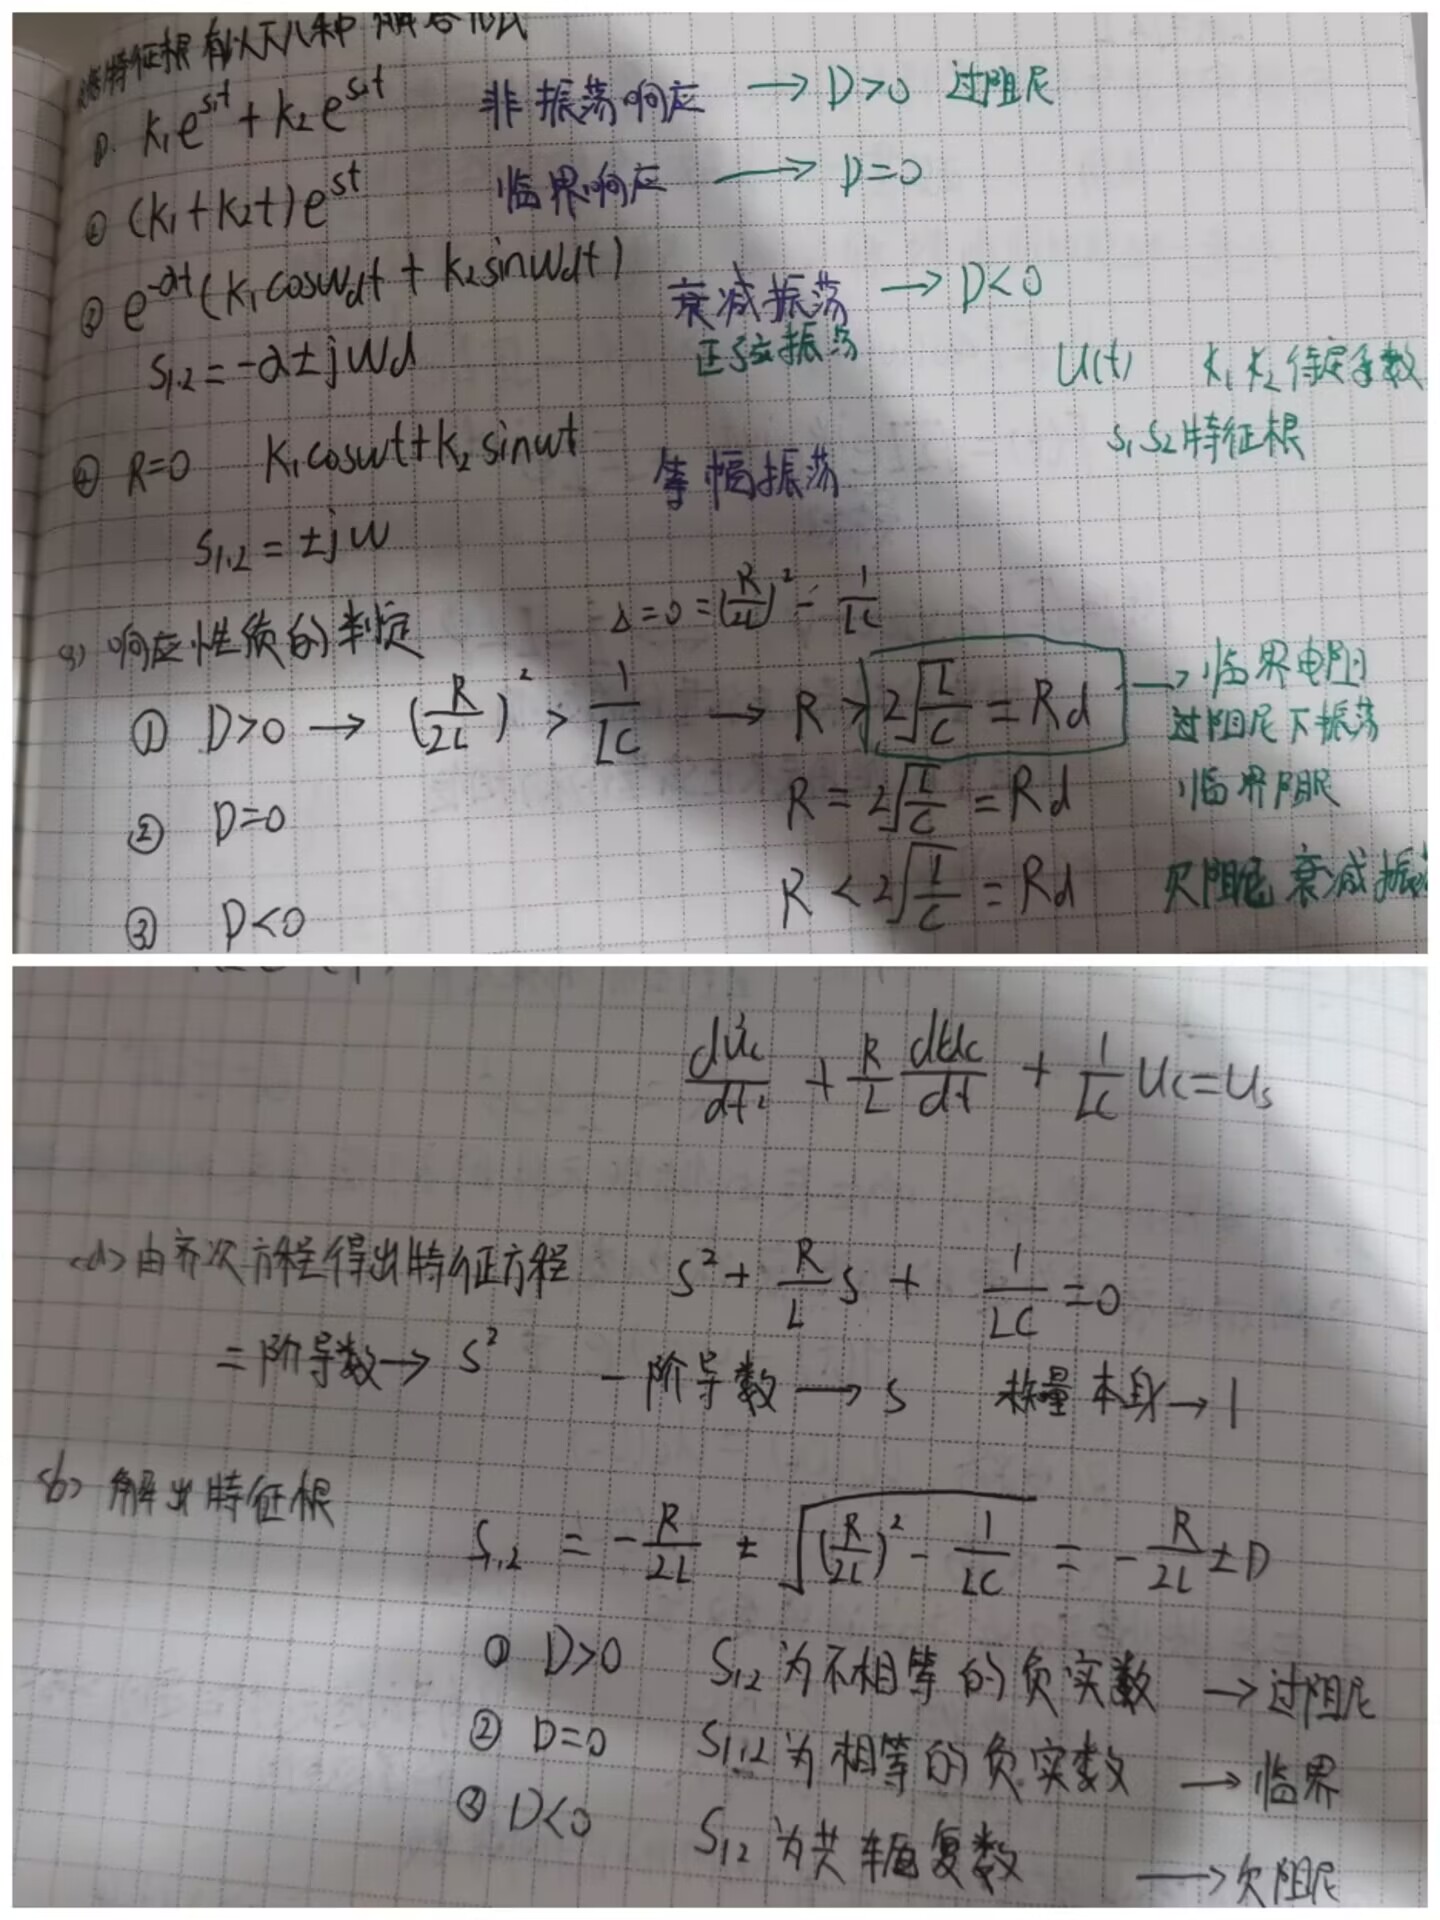 特征根有以下几种
①. k₁e^{s₁t} + k₂e^{s₂t} 非振荡响应 → D>0 过阻尼
② (k₁+k₂t)e^{st} 临界响应 → D=0
③ e^{-αt}(k₁coswdt + k₂sinwdt) 衰减振荡 → D<0
正弦振荡
S₁,₂=-α±jwd
U(t) k₁ k₂待定系数
s₁ s₂特征根
④ R=0 k₁coswt+k₂sinwt 等幅振荡
S₁,₂=±jw
Δ=0=(R/2L)²-1/LC
响应性质的判定
① D>0 → (R/2L)² > 1/LC → R > 2√(L/C) = Rd → 临界电阻
过阻尼下振荡
② D=0 R = 2√(L/C) = Rd 临界阻尼
③ D<0 R < 2√(L/C) = Rd 欠阻尼 衰减振
d²uc/dt² + R/L duc/dt + 1/LC Uc=Us
由齐次方程得出特征方程 s²+ R/L s + 1/LC =0
二阶导数→ s² 一阶导数 → s 本身→1
<b> 解出特征根
S₁,₂ = -R/2L ± √((R/2L)² - 1/LC) = -R/2L ±D
① D>0 S₁₂为不相等的负实数 → 过阻尼
② D=0 S₁,₂为相等的负实数 → 临界
③ D<0 S₁₂为共轭复数 → 欠阻尼